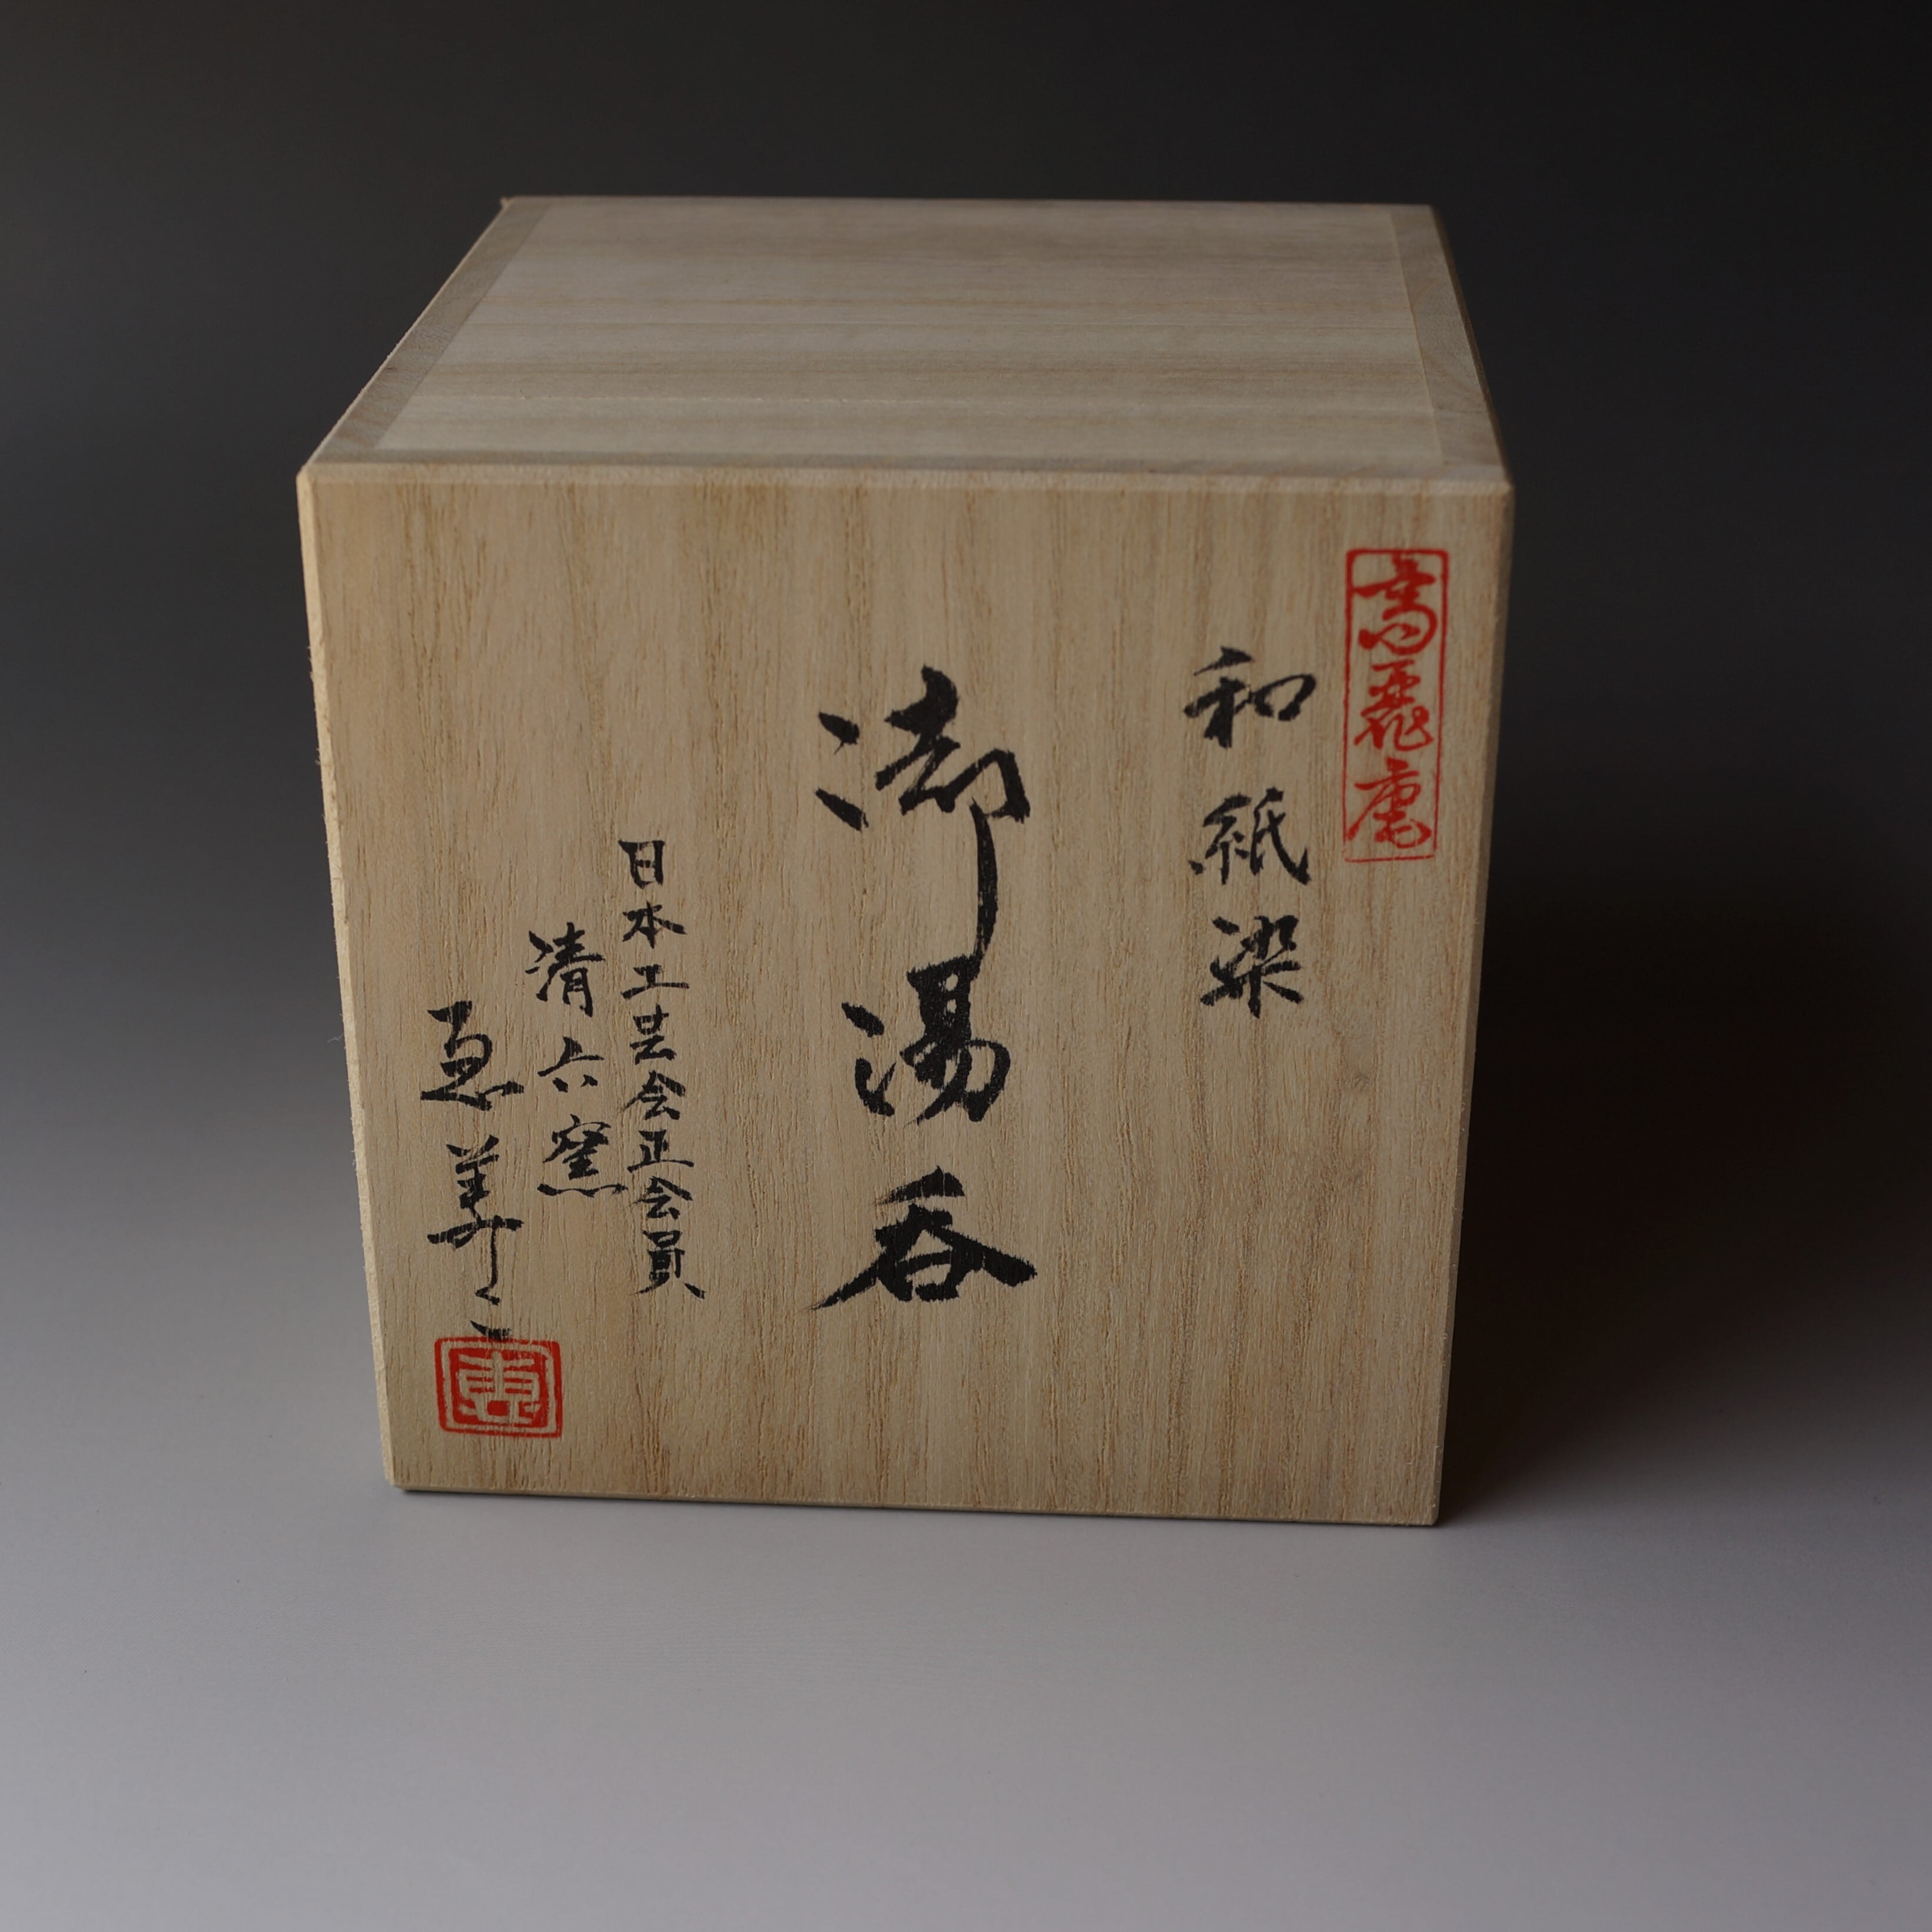 高麗庵
和紙染
御湯呑
日本工芸会正会員
清六窯
恵美子
恵